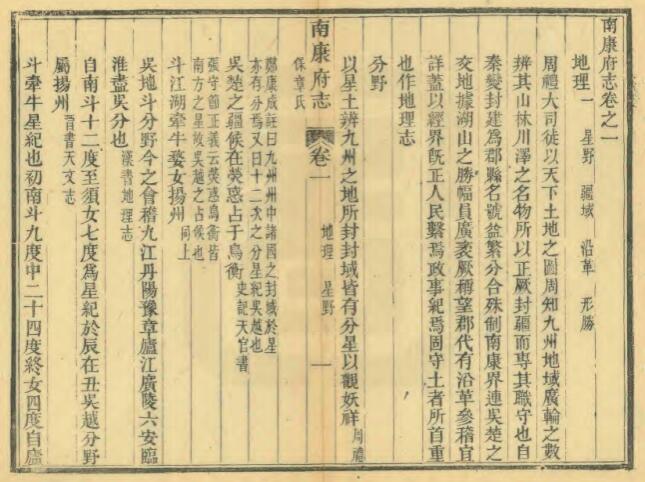 南康府志卷之一
地理一 星野 疆域 沿革 形勝
周禮大司徒以天下土地之圖周知九州地域廣輪之數
辨其山林川澤之名物所以正厥封疆而專其職守也自
秦變封建為郡縣名號益繁分合殊制南康界連吳楚之
交地據湖山之勝幅員廣袤厥稱望郡代有沿革參稽宜
詳蓋以經界既正人民繫焉政事紀焉固守土者所首重
也作地理志
分野
以星土辨九州之地所封封域皆有分星以觀妖祥周禮
保章氏
南康府志 卷一 地理 星野 一
鄭康成註曰九州州中諸國之封域於星
亦有分焉又曰十二次之分星紀吳越也
吳楚之疆候在熒惑占于鳥衡史記天官書
張守節正義云熒惑鳥衡皆
南方之星故吳越之占候也
斗江湖牽牛婺女揚州同上
吳地斗分野今之會稽九江丹陽豫章廬江廣陵六安臨
淮盡吳分也漢書地理志
自南斗十二度至須女七度為星紀於辰在丑吳越分野
屬揚州晉書天文志
斗牽牛星紀也初南斗九度中二十四度終女四度自廬